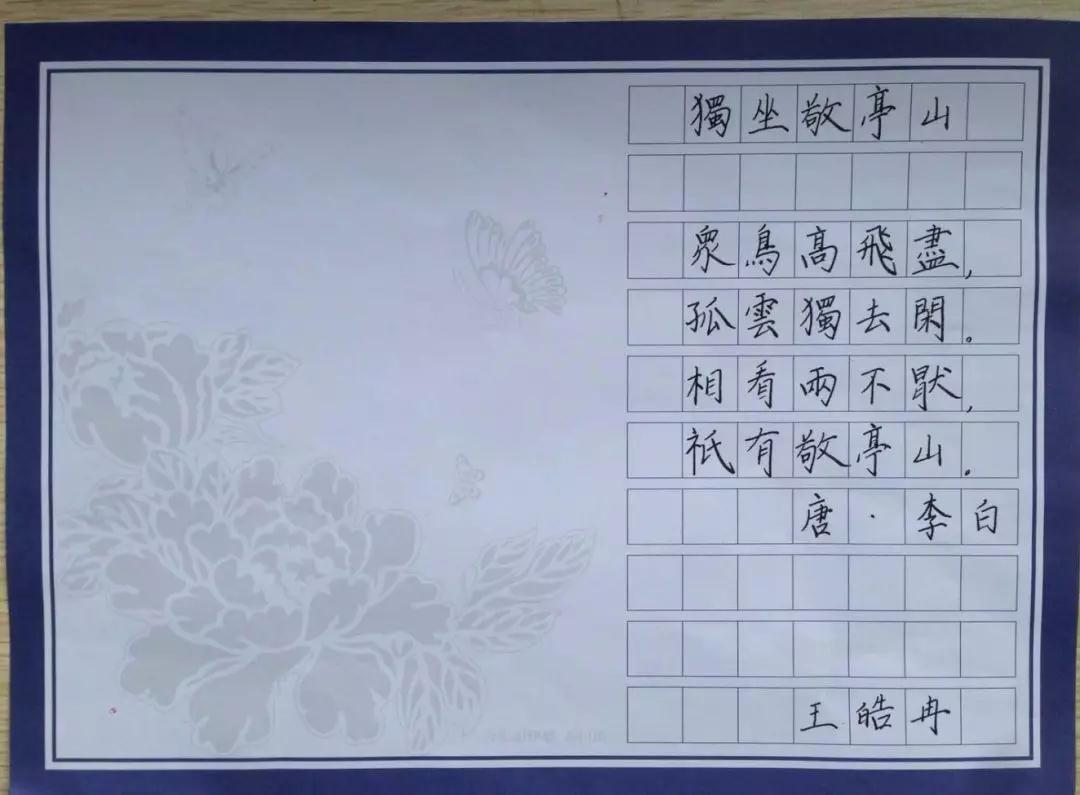 獨坐敬亭山
衆鳥高飛盡，
孤雲獨去閑。
相看兩不猒，
祇有敬亭山。
唐·李白
王皓冉